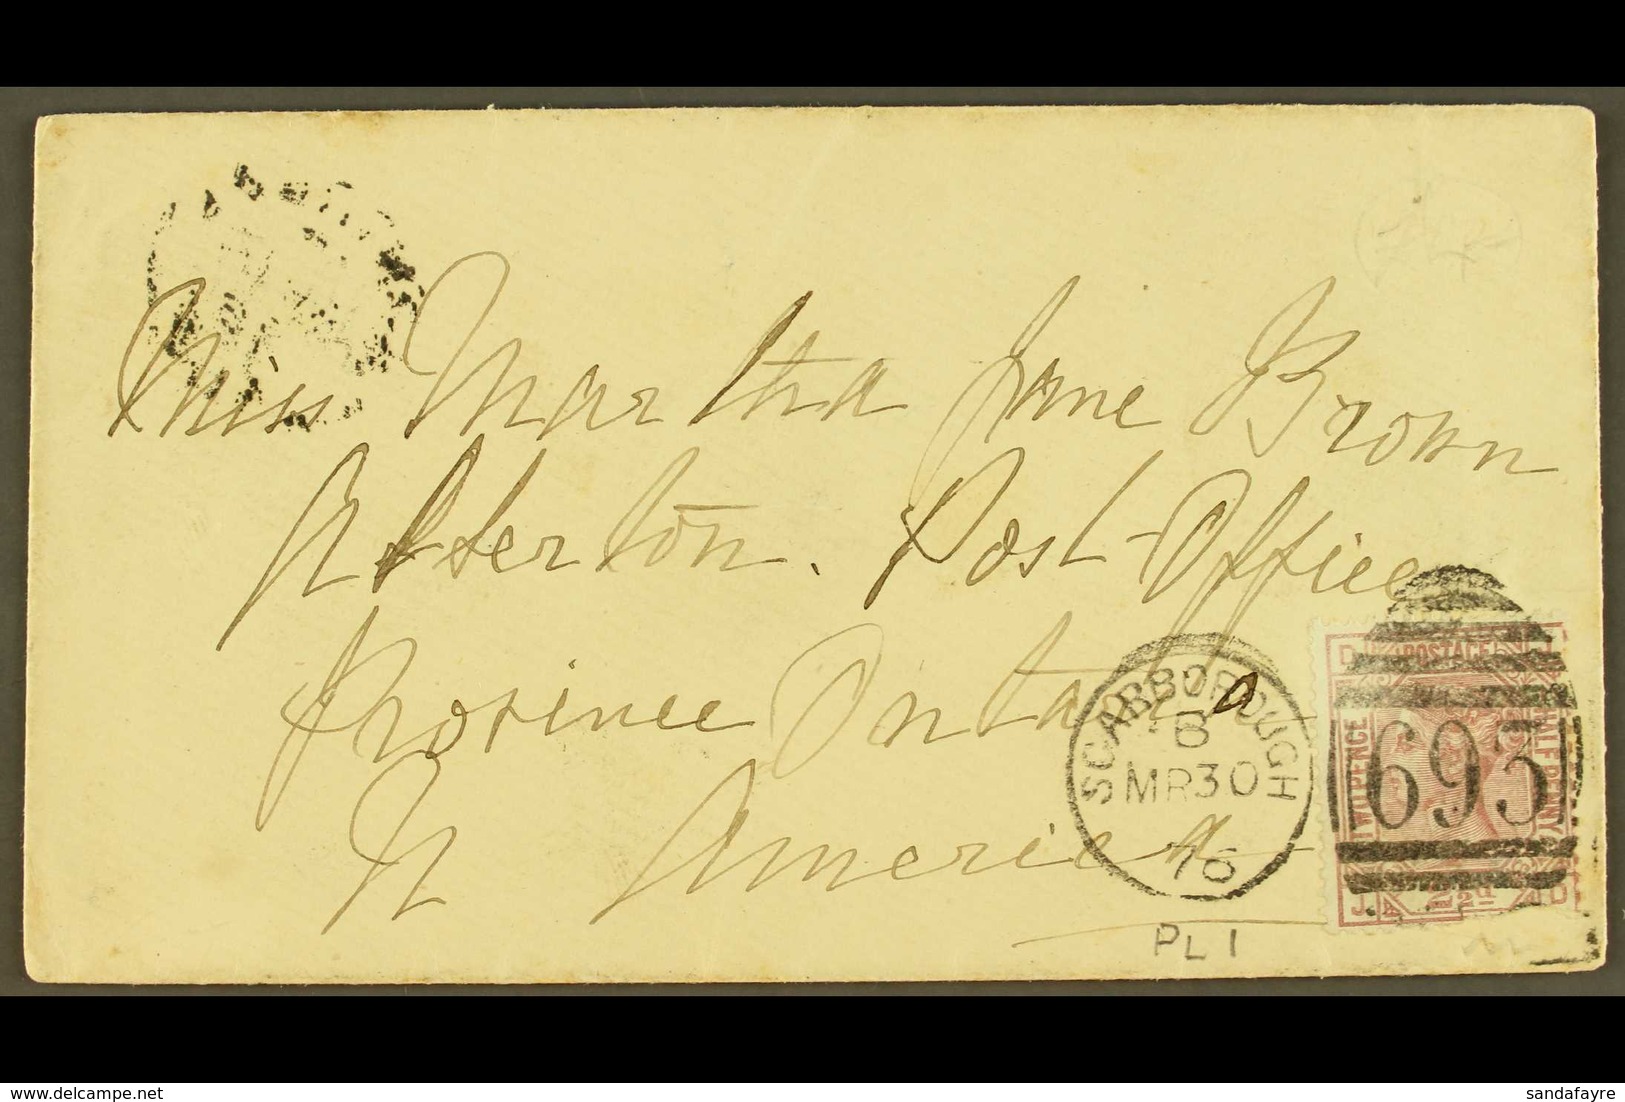 Miss Martha Jane Brown
Alberton. Post Office
Province Ontario
N America
SCARBOROUGH
B
MR 30
76
693
POSTAGE
TWO PENCE
HALF PENNY
D J
J D
2½d
PL 1
sandafayre